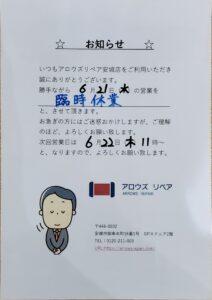 ☆ お知らせ ☆
いつもアロウズリペア安城店をご利用いただき
誠にありがとうございます。
勝手ながら 6月21日 水 の営業を
臨時休業
と、させて頂きます。
お急ぎの方にはご迷惑おかけしますが、ご理解
のほど、よろしくお願い致します。
次回営業日は 6月22日 木 11時～
と、なりますので、よろしくお願い致します。
アロウズ リペア
ARROWS REPAIR
〒446-0032
TEL：0120-211-903